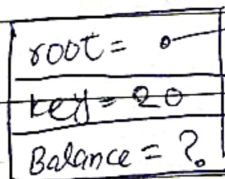 root =
key = 20
Balance = ?